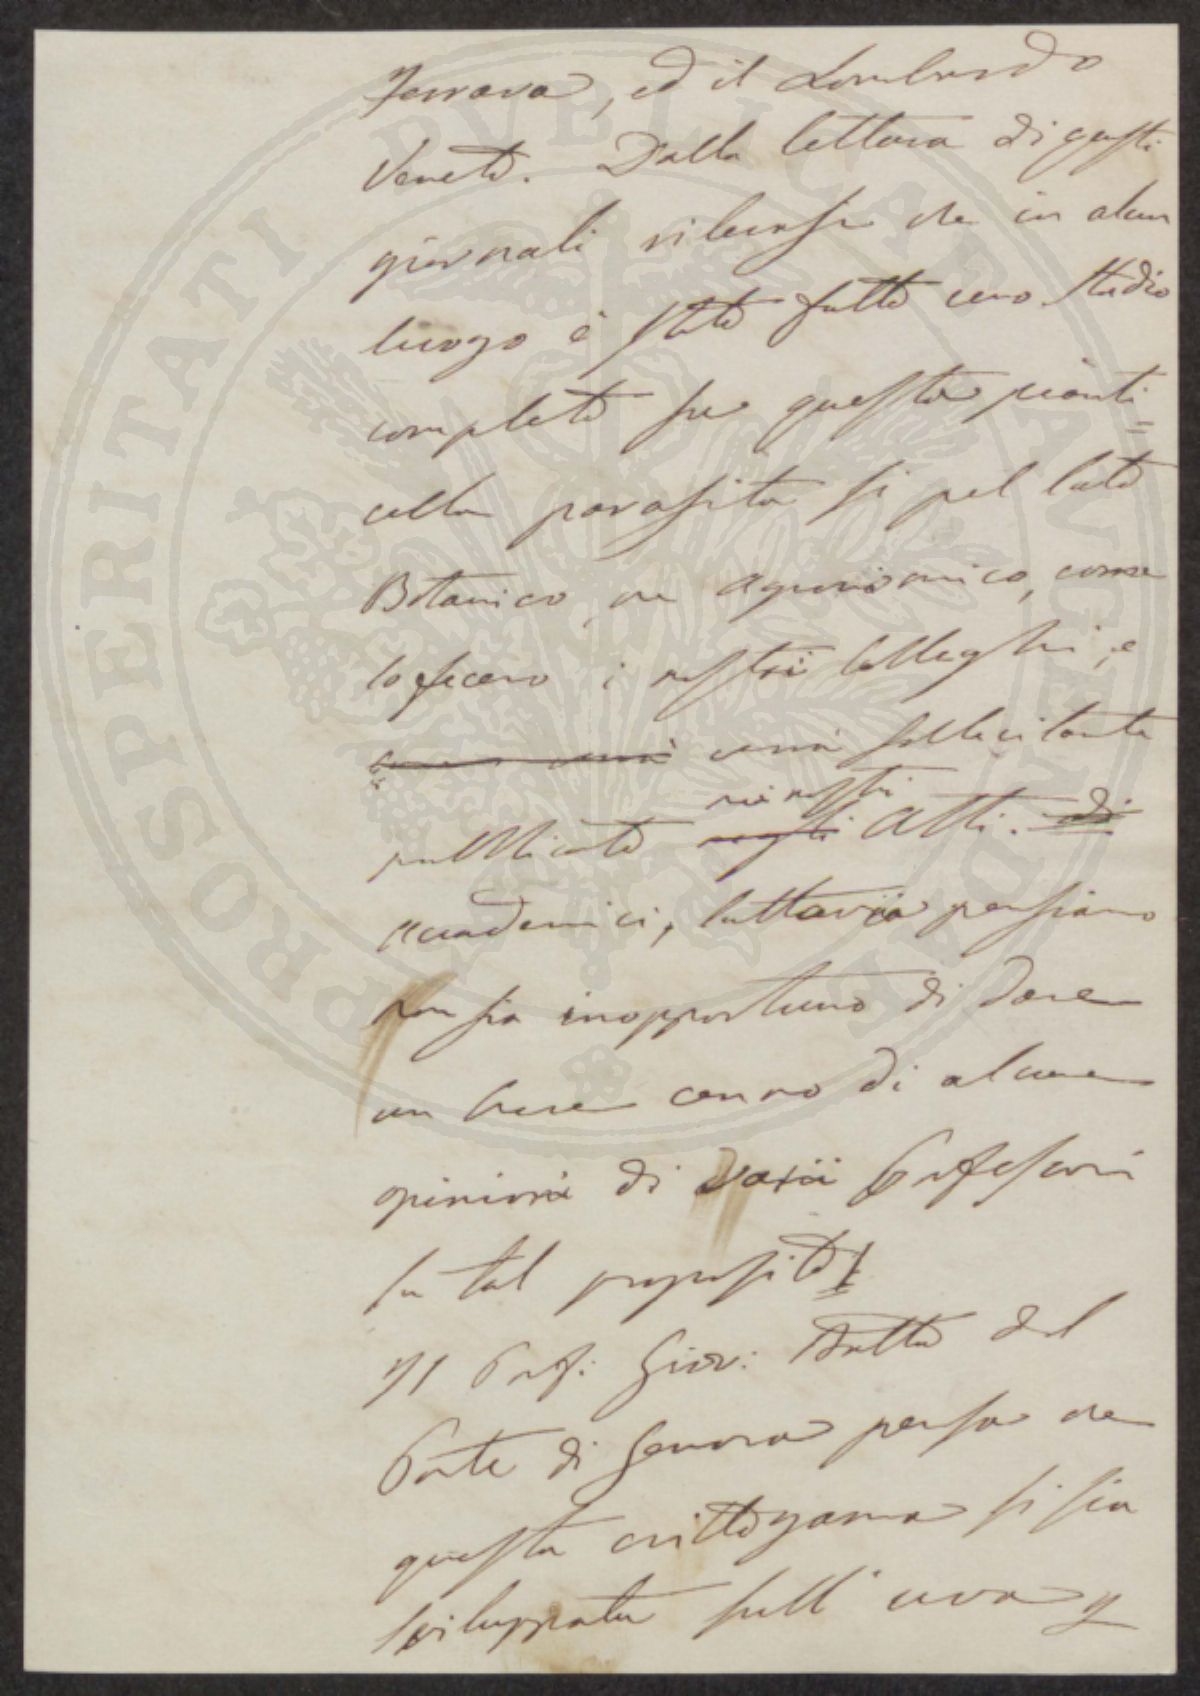 Ferrara, ed il Lombardo
Veneto. Dalla lettura di questi
giornali rilevasi che in alcun
luogo è stato fatto uno studio
completo su questa pianti=
cella parasita si pel lato
Botanico, che agronomico, come
lo fecero i nostri Colleghi, e
venne sollecitamente
pubblicato nei nostri negli Atti. di
accademici, tuttavia pensiamo
non sia inopportuno di dare
un breve cenno di alcune
opinioni di varii Professori
su tal proposito.
Il Prof: Giov: Batta del
Ponte di Genova pensa che
questa crittogama si sia
sviluppata sull' uva
PROSPERITATI PVBLICAE AVGENDAE